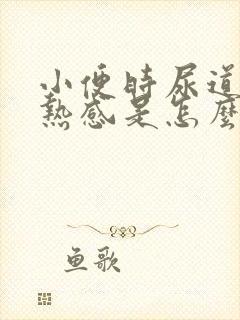 小便時尿道
熱感是怎麼
鱼歌